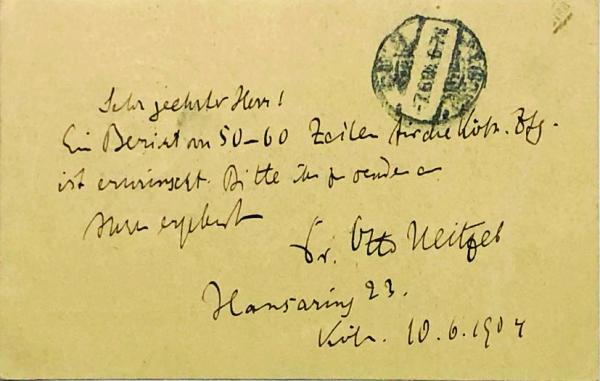 7.6.04. 6-7N
Sehr geehrter Herr!
Ein Bericht von 50-60 Zeilen für die Köln. Ztg.
ist erwünscht. Bitte ihn zu senden an
Ihren ergebenst
Dr. Otto Neitzel
Hansaring 23.
Köln. 10.6.1904